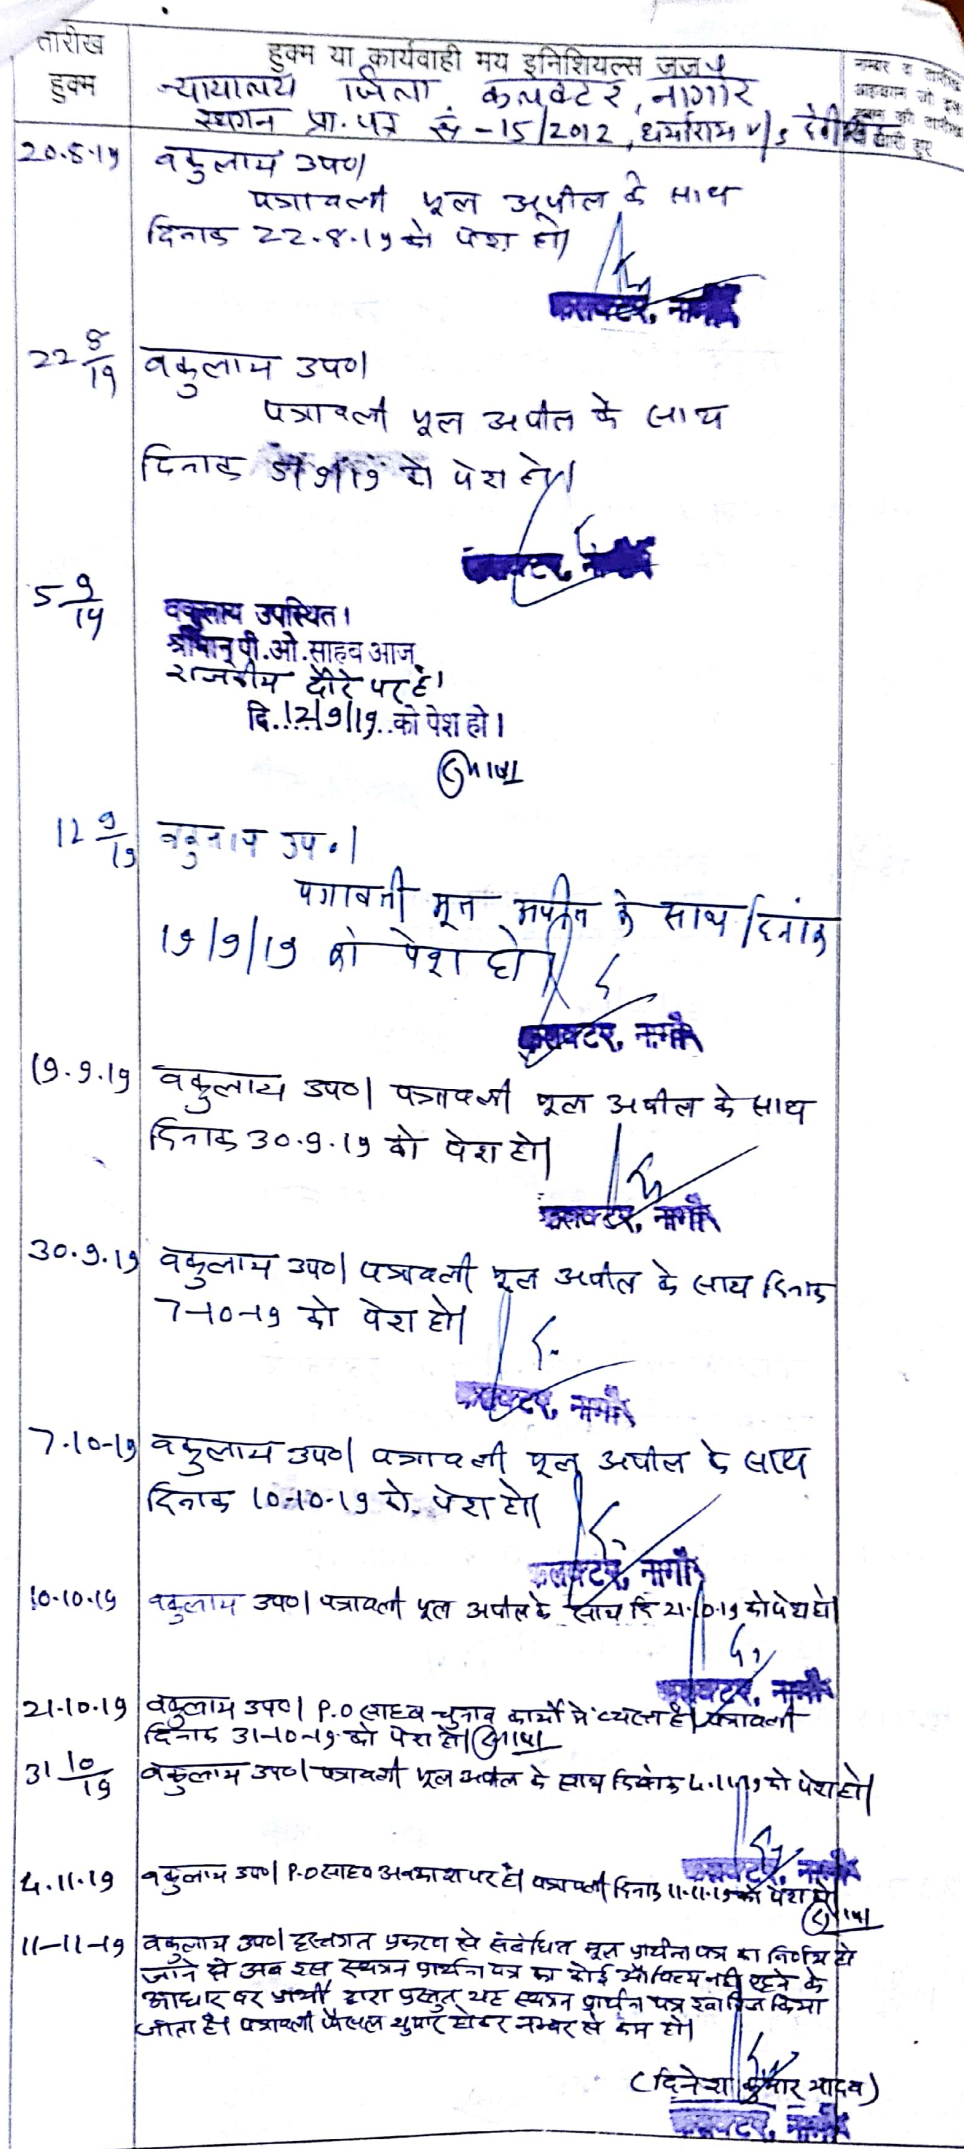 तारीख
हुक्म
हुक्म या कार्यवाही मय इनिशियल्स जज
नम्बर व तारीख
अहकाम जो इस
हुक्म की तामील
में जारी हुए
न्यायालय जिला कलक्टर, नागौर
स्थगन प्रा. पत्र सं -15/2012, धर्माराम v/s
20.8.19
वकुलाय उप०।
पत्रावली मूल अपील के साथ
दिनांक 22.8.19 को पेश हो।
कलक्टर, नागौर
22 8/19
वकुलाय उप०।
पत्रावली मूल अपील के साथ
दिनांक 5/9/19 को पेश हो।
कलक्टर, नागौर
5 9/19
वकुलाय उपस्थित।
श्रीमान् पी.ओ. साहब आज
राजकीय दौरे पर है।
दि. 12/9/19 को पेश हो।
12 9/19
वकुलाय उप.।
पत्रावली मूल अपील के साथ दिनांक
19/9/19 को पेश हो।
कलक्टर, नागौर
19.9.19
वकुलाय उप०। पत्रावली मूल अपील के साथ
दिनांक 30.9.19 को पेश हो।
कलक्टर, नागौर
30.9.19
वकुलाय उप०। पत्रावली मूल अपील के साथ दिनांक
7-10-19 को पेश हो।
कलक्टर, नागौर
7-10-19
वकुलाय उप०। पत्रावली मूल अपील के साथ
दिनांक 10-10-19 को पेश हो।
कलक्टर, नागौर
10.10.19
वकुलाय उप०। पत्रावली मूल अपील के साथ दि 21.10.19 को पेश हो।
कलक्टर, नागौर
21.10.19
वकुलाय उप०। P.O साहब चुनाव कार्यों में व्यस्त है। पत्रावली
दिनांक 31-10-19 को पेश हो।
31 10/19
वकुलाय उप०। पत्रावली मूल अपील के साथ दिनांक 4.11.19 को पेश हो।
कलक्टर, नागौर
4.11.19
वकुलाय उप०। P.O साहब अवकाश पर है। पत्रावली दिनांक 11-11-19 को पेश हो।
11-11-19
वकुलाय उप०। हस्तगत प्रकरण से संबंधित मूल प्रार्थना पत्र का निर्णय हो
जाने से अब इस स्थगन प्रार्थना पत्र का कोई औचित्य नहीं रहने के
आधार पर प्रार्थी द्वारा प्रस्तुत यह स्थगन प्रार्थना पत्र खारिज किया
जाता है। पत्रावली फैसल शुमार होकर नम्बर से कम हो।
(दिनेश कुमार यादव)
कलक्टर, नागौर